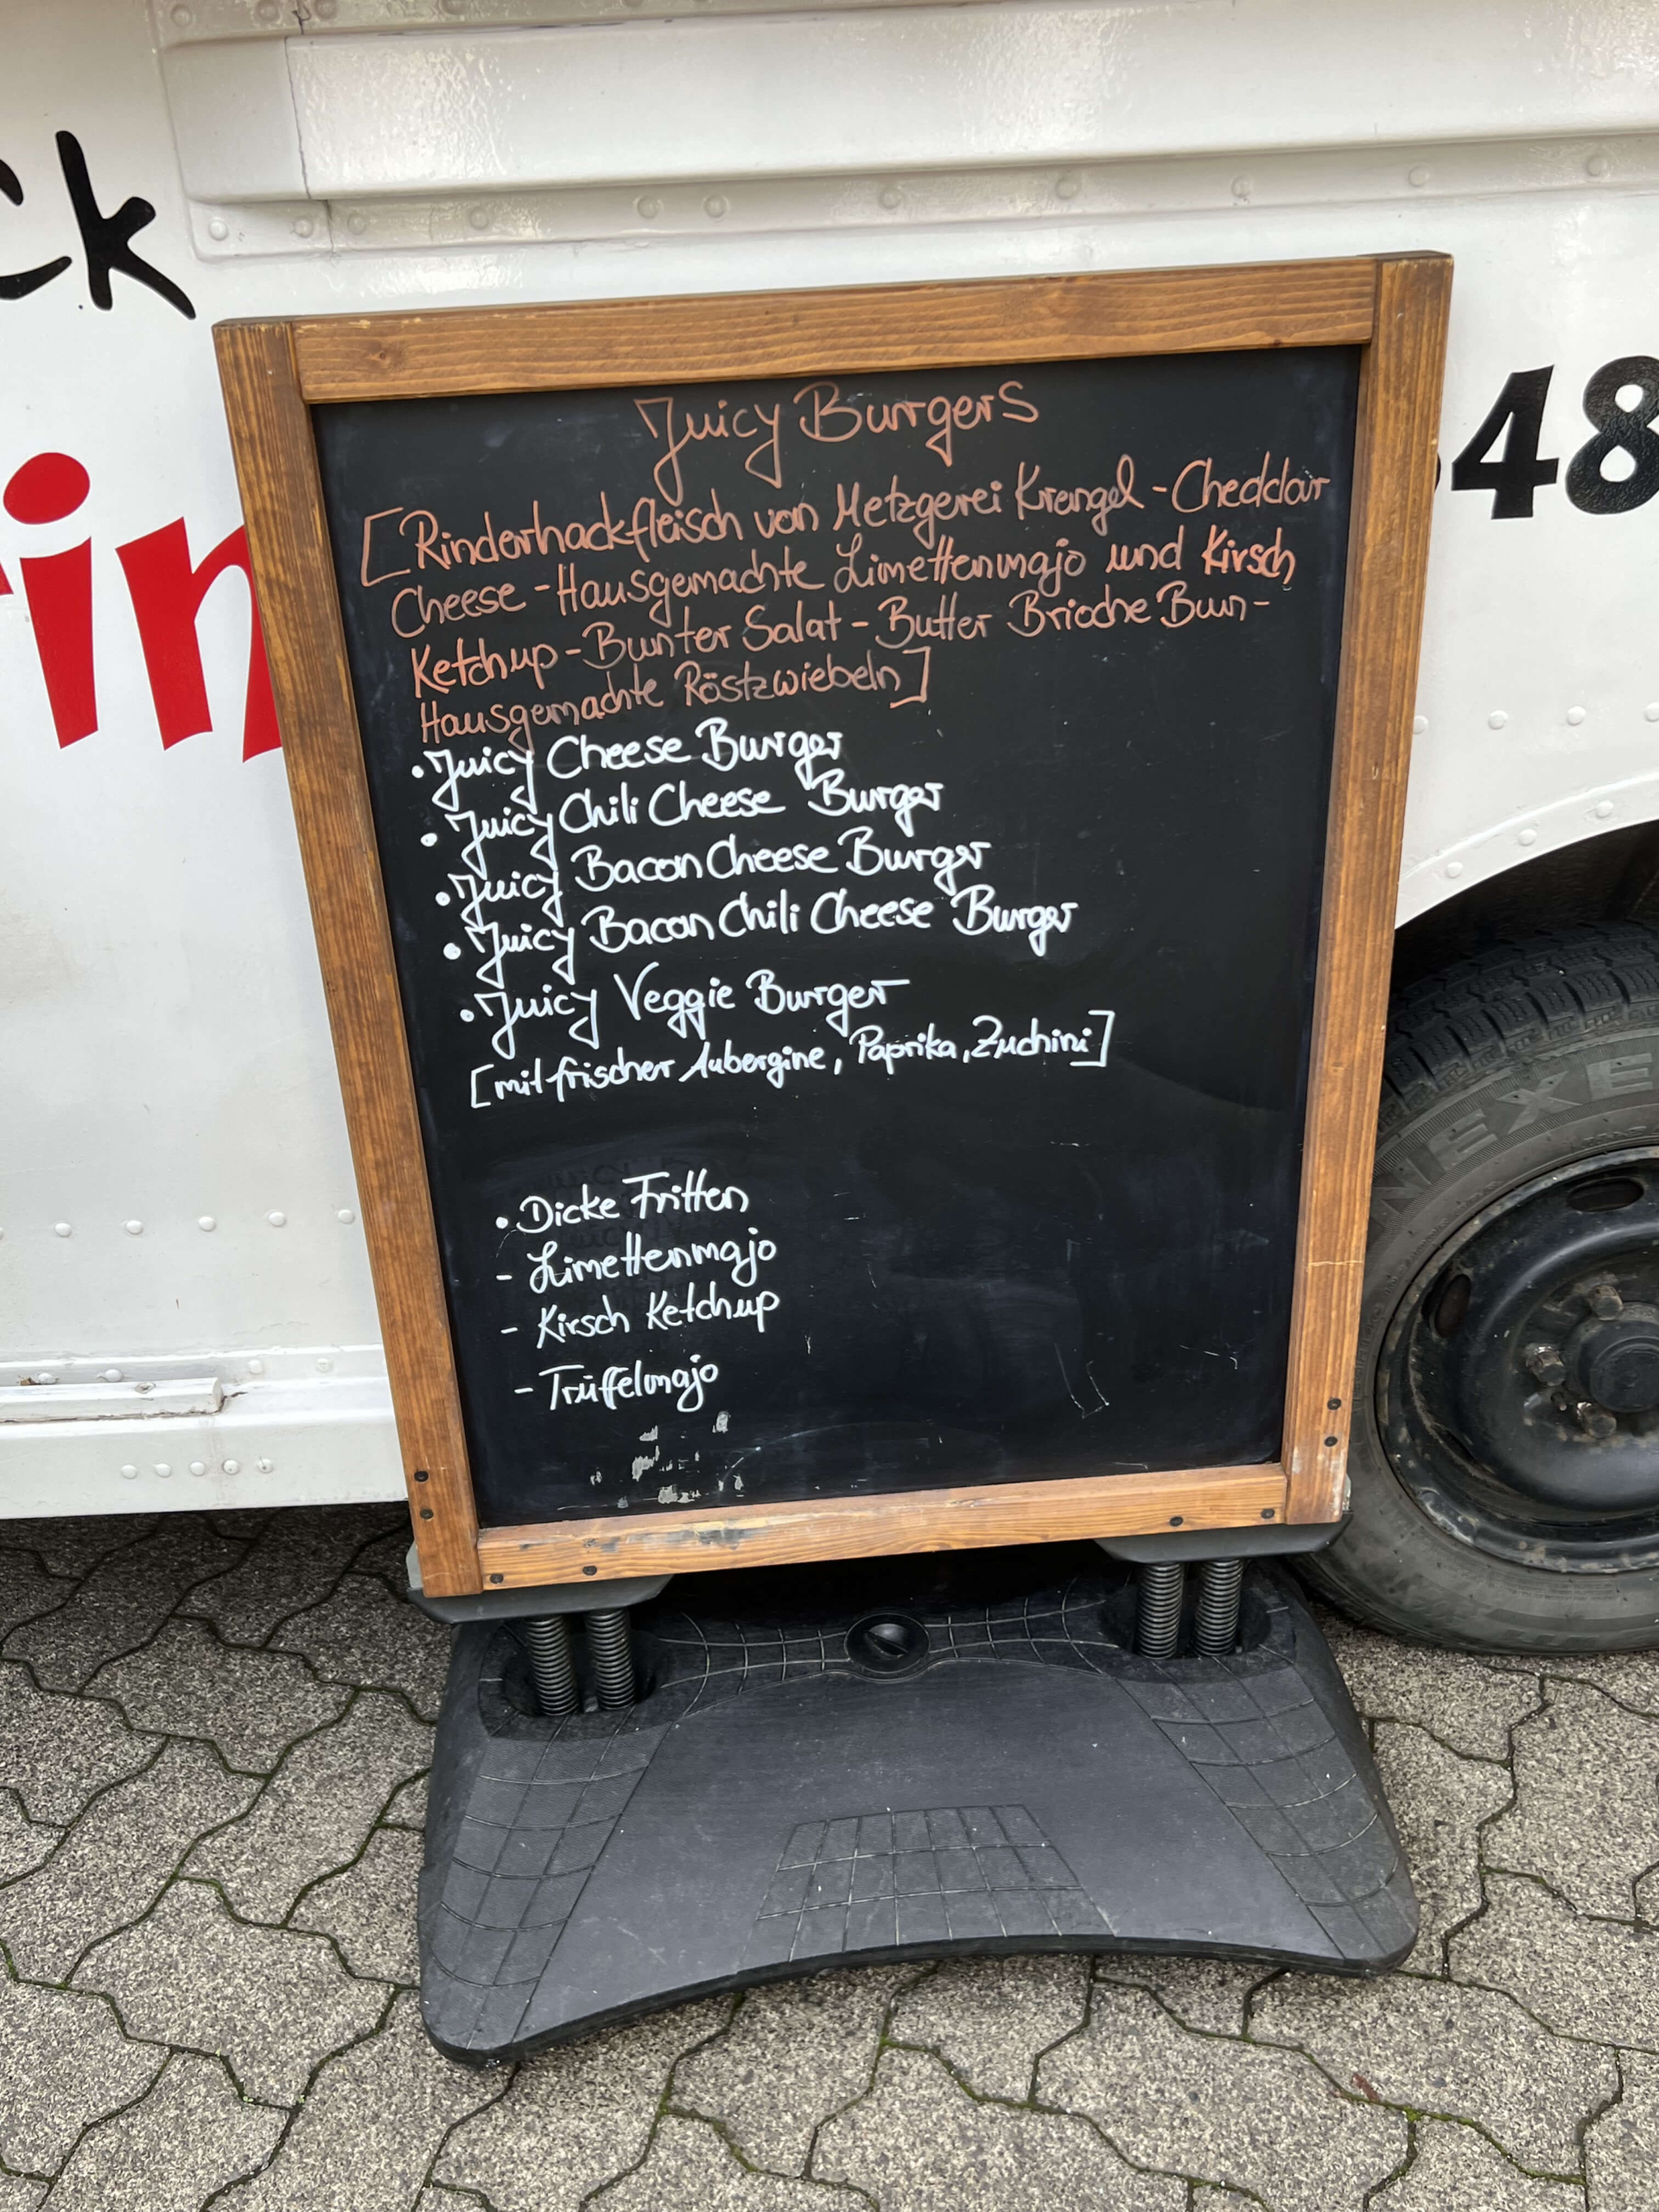 ck
in
48
Juicy Burgers
[Rinderhackfleisch von Metzgerei Krengel - Cheddar
Cheese - Hausgemachte Limettenmajo und Kirsch
Ketchup - Bunter Salat - Butter Brioche Bun -
Hausgemachte Röstzwiebeln]
• Juicy Cheese Burger
• Juicy Chili Cheese Burger
• Juicy Bacon Cheese Burger
• Juicy Bacon Chili Cheese Burger
• Juicy Veggie Burger
[mit frischer Aubergine, Paprika, Zuchini]
• Dicke Fritten
- Limettenmajo
- Kirsch Ketchup
- Trüffelmajo
NEXE